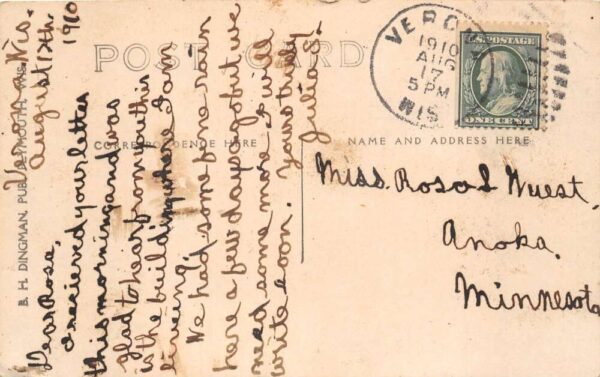 POST CARD
CORRESPONDENCE HERE
NAME AND ADDRESS HERE
B. H. DINGMAN, PUB., PLYMOUTH, WIS.
VERO
1910
AUG
17
5 PM
WIS
U.S. POSTAGE
ONE CENT
Verona Wis.
August 17th.
1910
Dear Rose,
I recieved your letter
this morning and was
glad to hear from you this
is the building where I am
liveing,
We had some fine rain
here a few days ago but we
need some more. I will
write soon. Yours truly
Julia S.
Miss. Rose L Wuest,
Anoka,
Minnesota